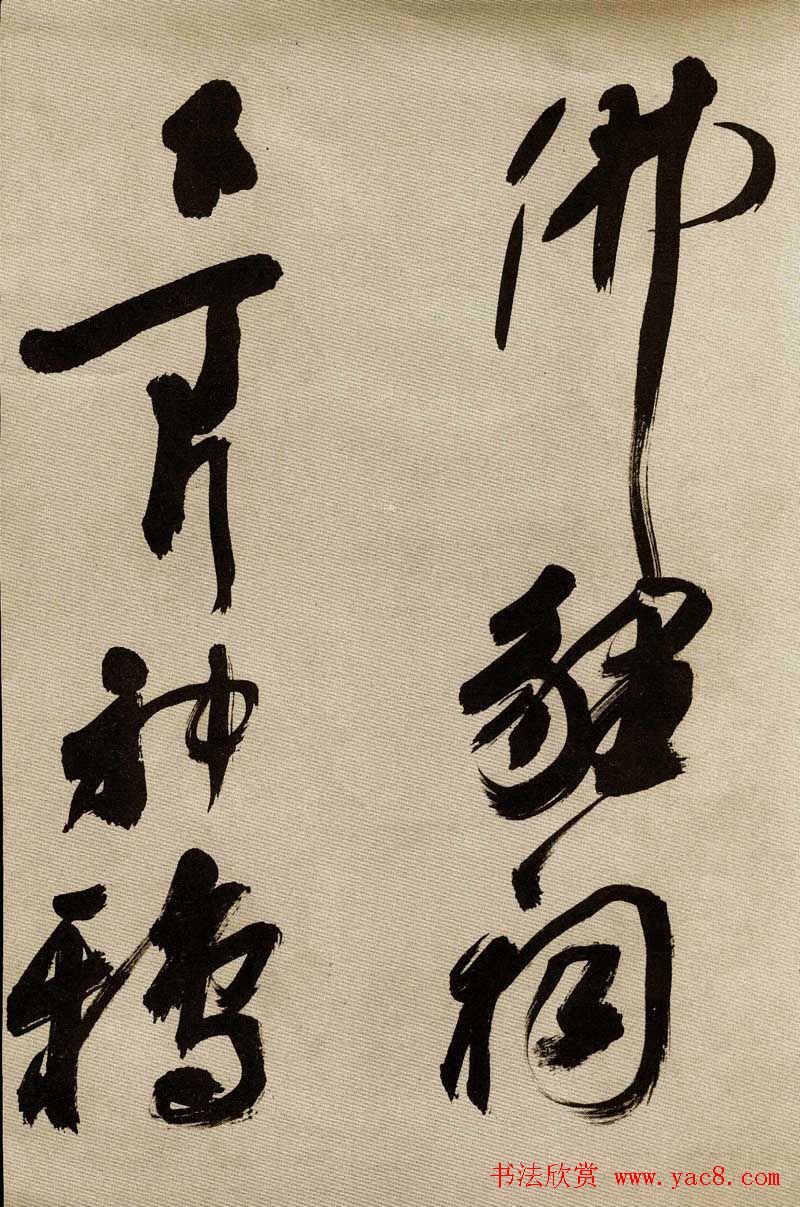 佛貍祠
下一片神鴉
书法欣赏 www.yac8.com